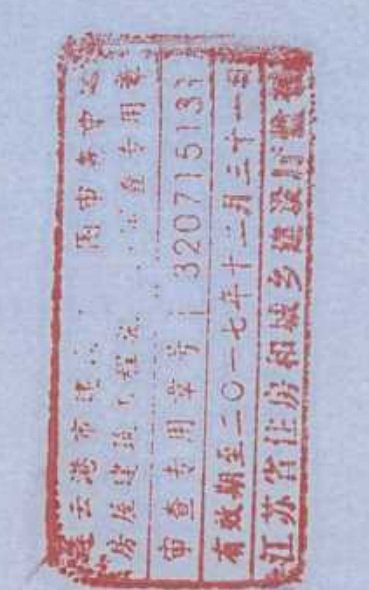 连云港市建 图审查中心
房屋建筑工程 审查专用章
审查专用章号 320715131
有效期至二〇一七年十二月三十一日
江苏省住房和城乡建设厅监制